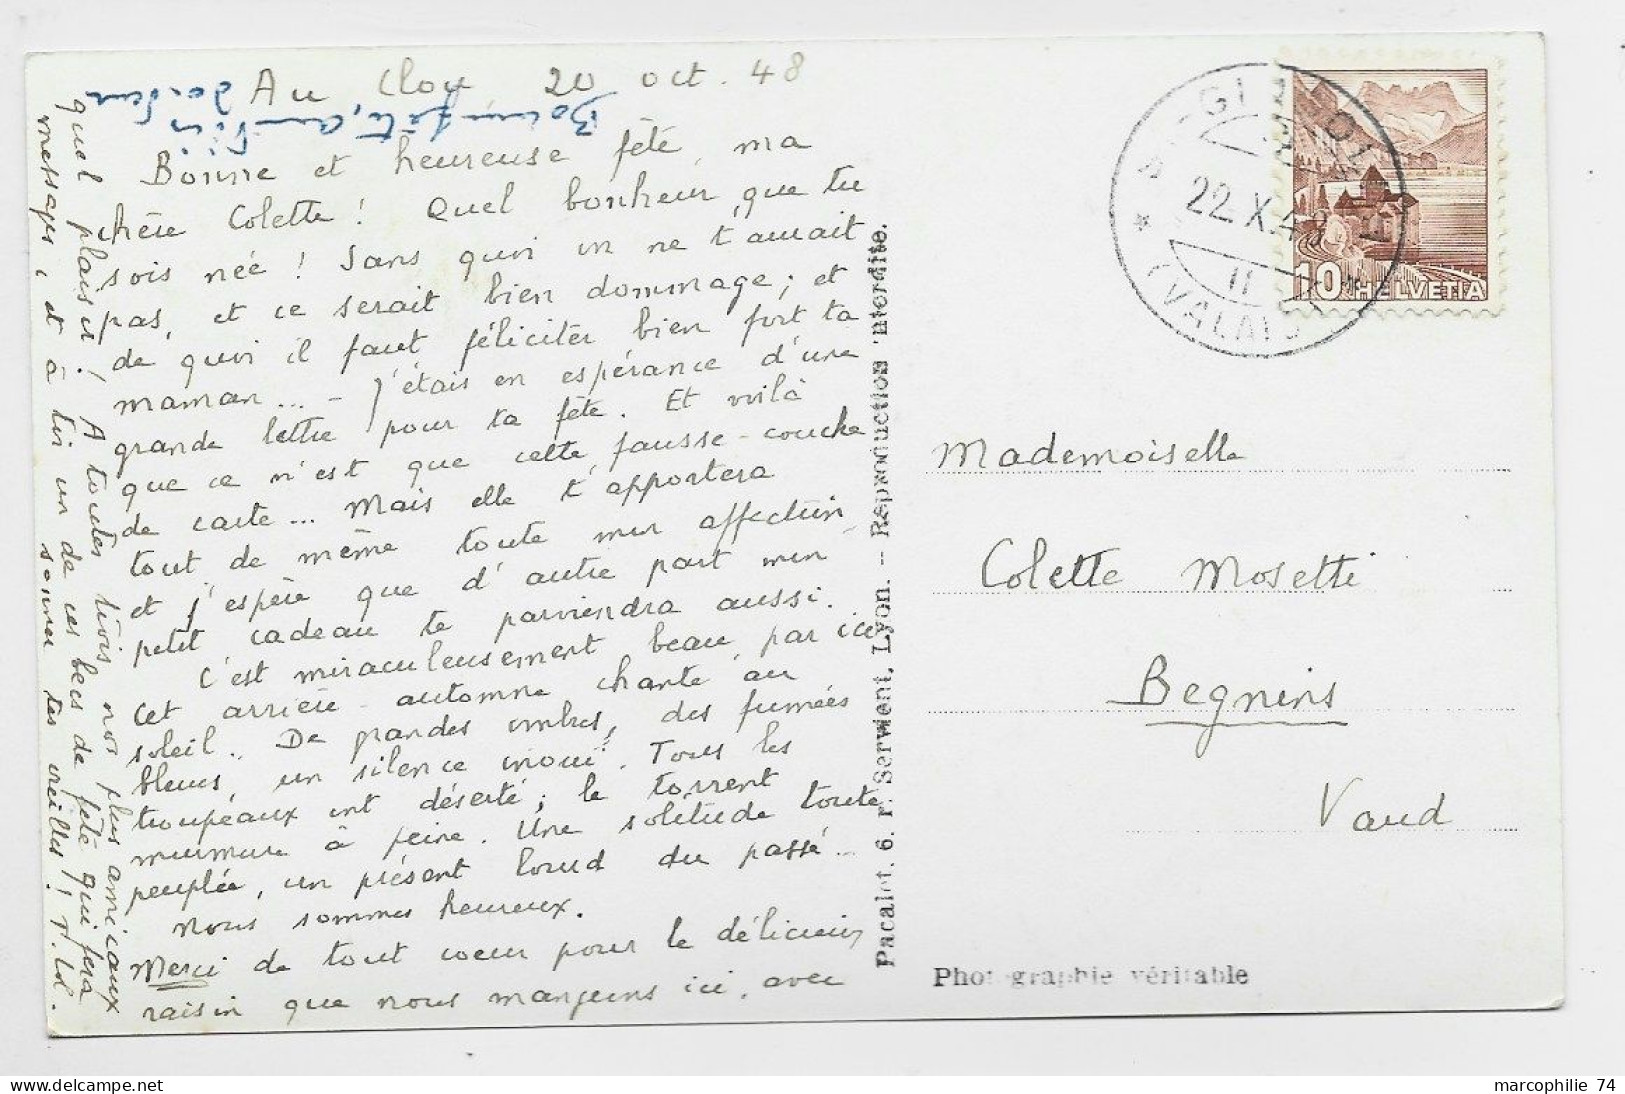 Au Clou, 20 oct. 48
Bonne fête,
Bonne et heureuse fête, ma
chère Colette ! Quel bonheur que tu
sois née ! Sans quoi on ne t'aurait
pas, et ce serait bien dommage ; et
de quoi il faut féliciter bien fort ta
maman... - J'étais en espérance d'une
grande lettre pour ta fête. Et voilà
que ce n'est que cette fausse-couche
de carte... Mais elle t'apportera
tout de même toute mon affection
et j'espère que d'autre part mon
petit cadeau te parviendra aussi.
C'est miraculeusement beau, par ici,
cet arrière-automne chante au
soleil.. De grandes ombres, des fumées
bleues, un silence inouï. Tous les
troupeaux ont déserté ; le torrent
murmure à peine. Une solitude toute
peuplée, un présent lourd du passé...
Nous sommes heureux.
Merci de tout coeur pour le délicieux
raisin que nous mangeons ici, avec
quel plaisir ! A toutes trois nos plus amicaux
messages, et à toi un de ces becs de fête qui fera
sonner tes oreilles !
Pacalet, 6, r. Servient, Lyon. -- Reproduction interdite.
22.X.48
II
(VALAIS)
10 HELVETIA
Mademoiselle
Colette Mosetti
Begnins
Vaud
Photographie véritable
marcophilie 74